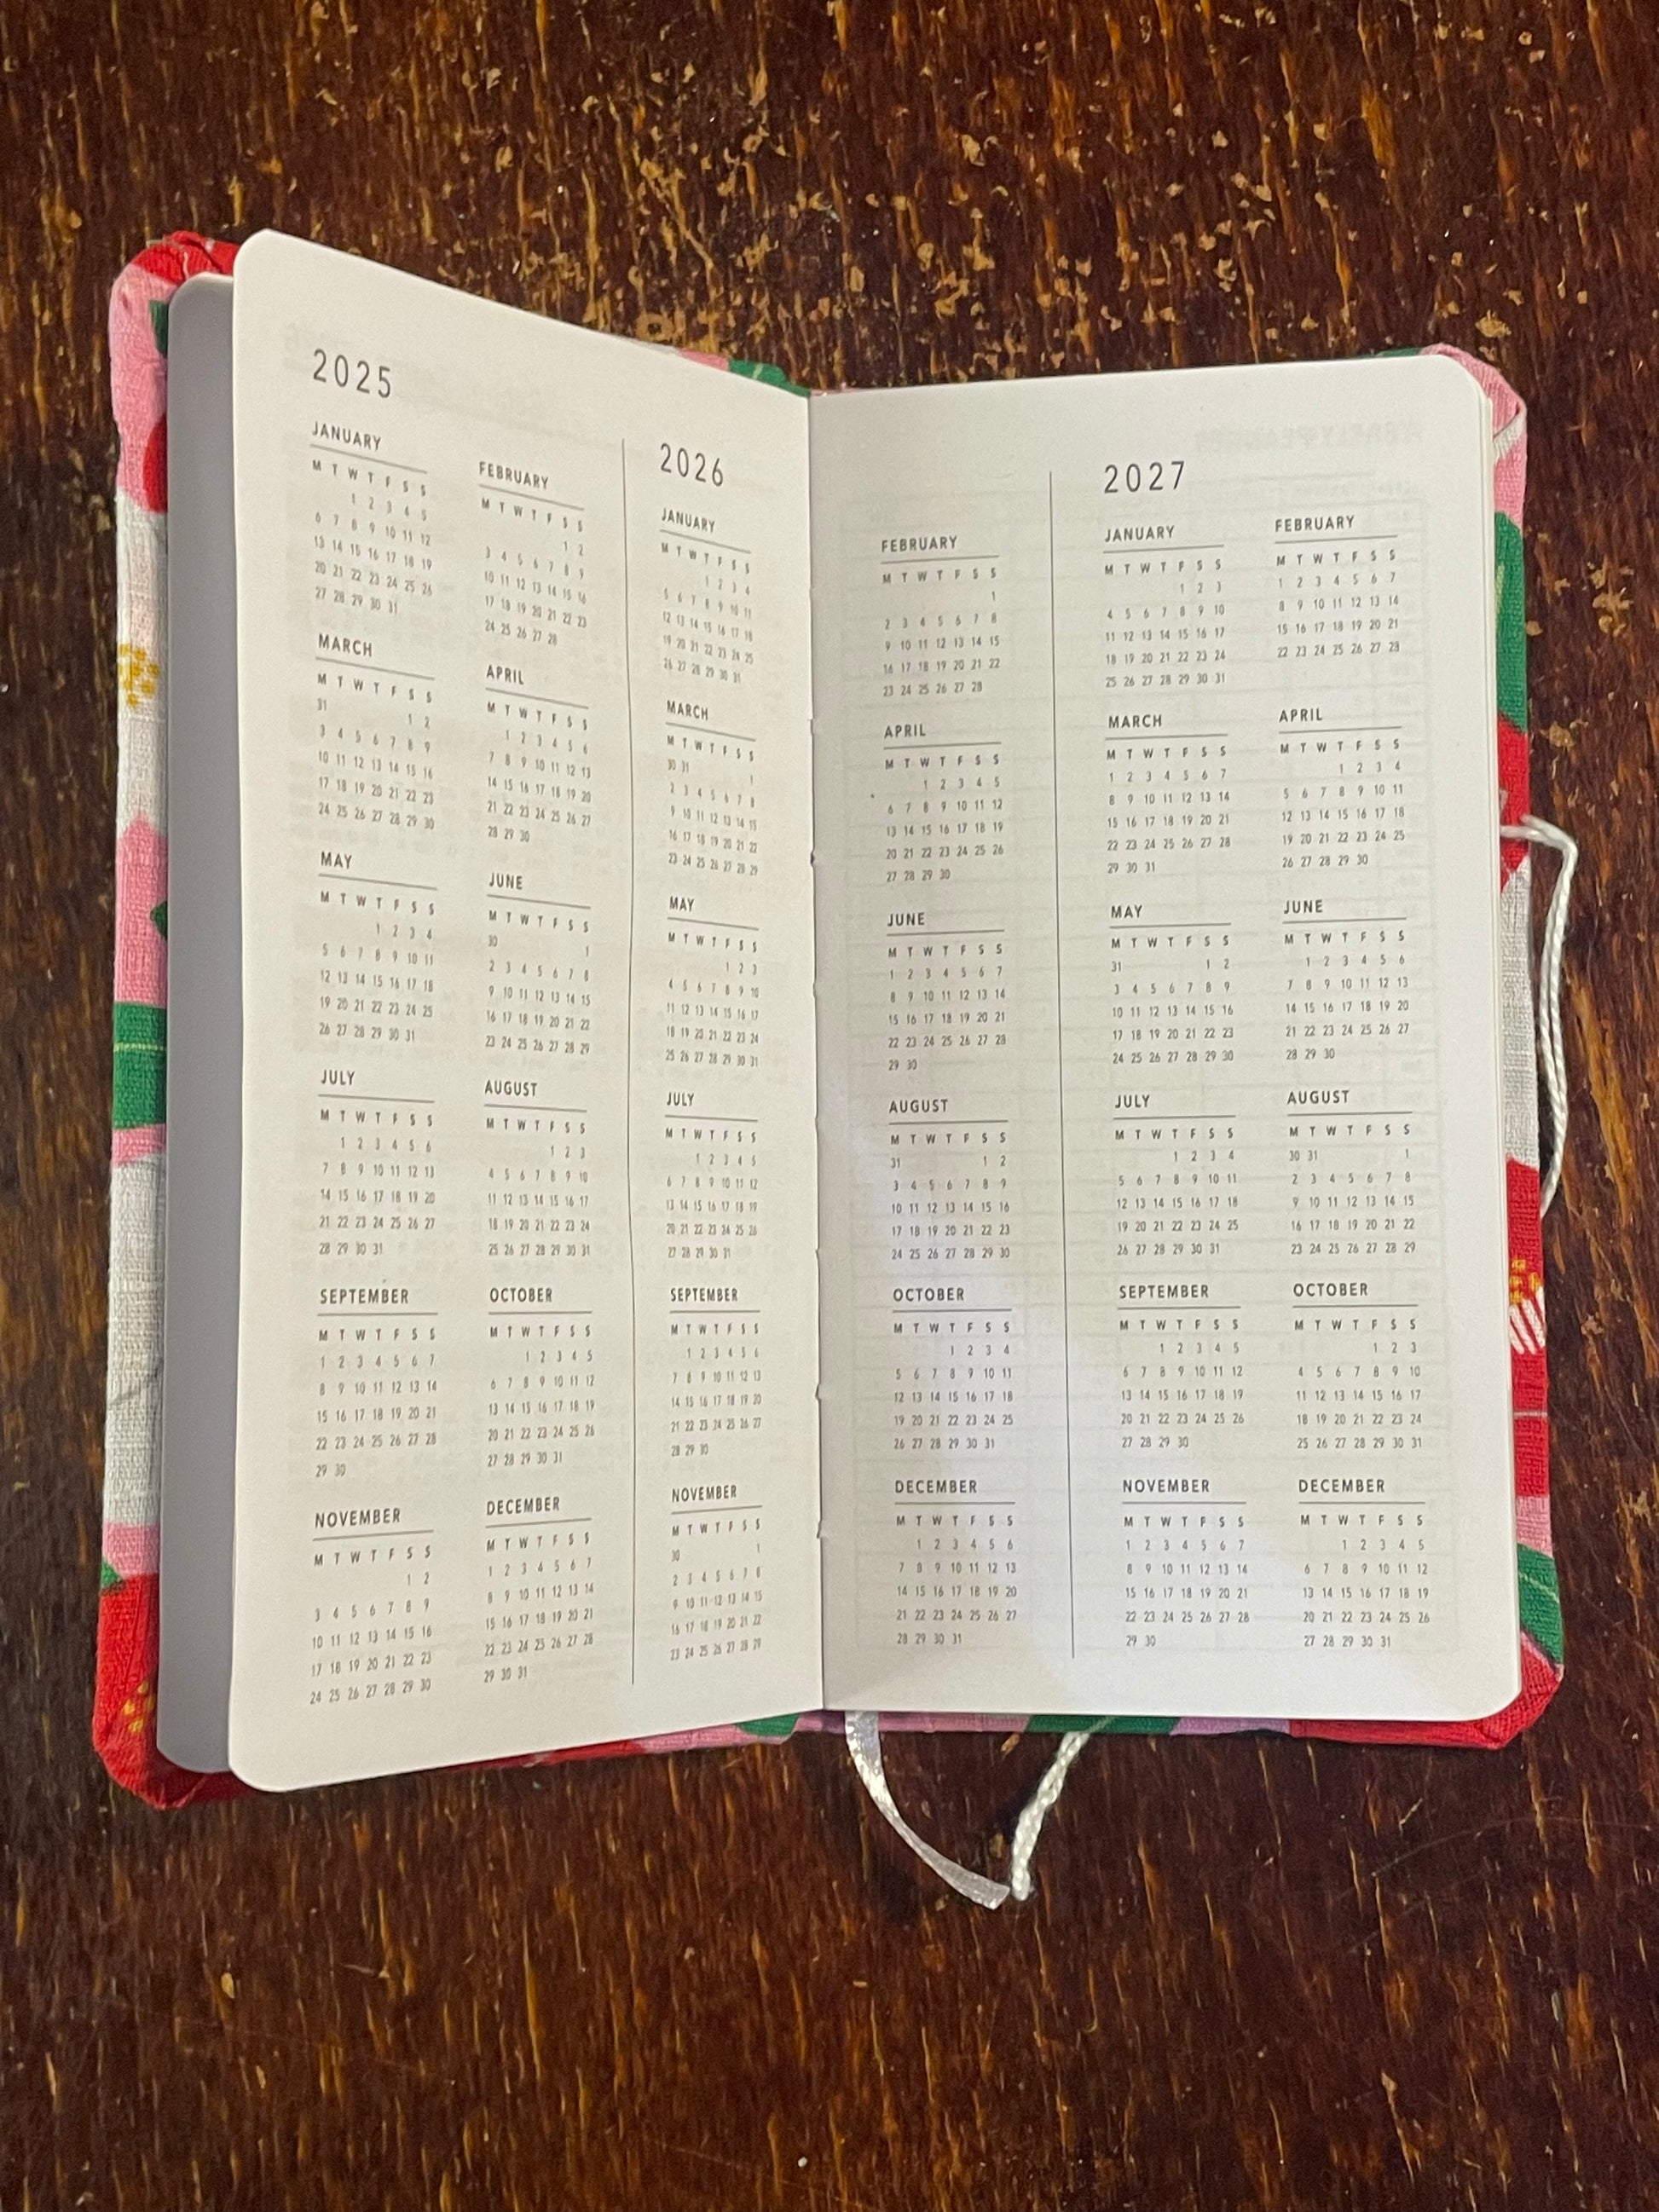 2025
JANUARY
M T W T F S S
1 2 3 4 5
6 7 8 9 10 11 12
13 14 15 16 17 18 19
20 21 22 23 24 25 26
27 28 29 30 31
FEBRUARY
M T W T F S S
1 2
3 4 5 6 7 8 9
10 11 12 13 14 15 16
17 18 19 20 21 22 23
24 25 26 27 28
MARCH
M T W T F S S
31 1 2
3 4 5 6 7 8 9
10 11 12 13 14 15 16
17 18 19 20 21 22 23
24 25 26 27 28 29 30
APRIL
M T W T F S S
1 2 3 4 5 6
7 8 9 10 11 12 13
14 15 16 17 18 19 20
21 22 23 24 25 26 27
28 29 30
MAY
M T W T F S S
1 2 3 4
5 6 7 8 9 10 11
12 13 14 15 16 17 18
19 20 21 22 23 24 25
26 27 28 29 30 31
JUNE
M T W T F S S
30 1
2 3 4 5 6 7 8
9 10 11 12 13 14 15
16 17 18 19 20 21 22
23 24 25 26 27 28 29
JULY
M T W T F S S
1 2 3 4 5 6
7 8 9 10 11 12 13
14 15 16 17 18 19 20
21 22 23 24 25 26 27
28 29 30 31
AUGUST
M T W T F S S
1 2 3
4 5 6 7 8 9 10
11 12 13 14 15 16 17
18 19 20 21 22 23 24
25 26 27 28 29 30 31
SEPTEMBER
M T W T F S S
1 2 3 4 5 6 7
8 9 10 11 12 13 14
15 16 17 18 19 20 21
22 23 24 25 26 27 28
29 30
OCTOBER
M T W T F S S
1 2 3 4 5
6 7 8 9 10 11 12
13 14 15 16 17 18 19
20 21 22 23 24 25 26
27 28 29 30 31
NOVEMBER
M T W T F S S
1 2
3 4 5 6 7 8 9
10 11 12 13 14 15 16
17 18 19 20 21 22 23
24 25 26 27 28 29 30
DECEMBER
M T W T F S S
1 2 3 4 5 6 7
8 9 10 11 12 13 14
15 16 17 18 19 20 21
22 23 24 25 26 27 28
29 30 31
2026
JANUARY
M T W T F S S
1 2 3 4
5 6 7 8 9 10 11
12 13 14 15 16 17 18
19 20 21 22 23 24 25
26 27 28 29 30 31
MARCH
M T W T F S S
30 31 1
2 3 4 5 6 7 8
9 10 11 12 13 14 15
16 17 18 19 20 21 22
23 24 25 26 27 28 29
MAY
M T W T F S S
1 2 3
4 5 6 7 8 9 10
11 12 13 14 15 16 17
18 19 20 21 22 23 24
25 26 27 28 29 30 31
JULY
M T W T F S S
1 2 3 4 5
6 7 8 9 10 11 12
13 14 15 16 17 18 19
20 21 22 23 24 25 26
27 28 29 30 31
SEPTEMBER
M T W T F S S
1 2 3 4 5 6
7 8 9 10 11 12 13
14 15 16 17 18 19 20
21 22 23 24 25 26 27
28 29 30
NOVEMBER
M T W T F S S
30 1
2 3 4 5 6 7 8
9 10 11 12 13 14 15
16 17 18 19 20 21 22
23 24 25 26 27 28 29
FEBRUARY
M T W T F S S
1
2 3 4 5 6 7 8
9 10 11 12 13 14 15
16 17 18 19 20 21 22
23 24 25 26 27 28
APRIL
M T W T F S S
1 2 3 4 5
6 7 8 9 10 11 12
13 14 15 16 17 18 19
20 21 22 23 24 25 26
27 28 29 30
JUNE
M T W T F S S
1 2 3 4 5 6 7
8 9 10 11 12 13 14
15 16 17 18 19 20 21
22 23 24 25 26 27 28
29 30
AUGUST
M T W T F S S
31 1 2
3 4 5 6 7 8 9
10 11 12 13 14 15 16
17 18 19 20 21 22 23
24 25 26 27 28 29 30
OCTOBER
M T W T F S S
1 2 3 4
5 6 7 8 9 10 11
12 13 14 15 16 17 18
19 20 21 22 23 24 25
26 27 28 29 30 31
DECEMBER
M T W T F S S
1 2 3 4 5 6
7 8 9 10 11 12 13
14 15 16 17 18 19 20
21 22 23 24 25 26 27
28 29 30 31
2027
JANUARY
M T W T F S S
1 2 3
4 5 6 7 8 9 10
11 12 13 14 15 16 17
18 19 20 21 22 23 24
25 26 27 28 29 30 31
FEBRUARY
M T W T F S S
1 2 3 4 5 6 7
8 9 10 11 12 13 14
15 16 17 18 19 20 21
22 23 24 25 26 27 28
MARCH
M T W T F S S
1 2 3 4 5 6 7
8 9 10 11 12 13 14
15 16 17 18 19 20 21
22 23 24 25 26 27 28
29 30 31
APRIL
M T W T F S S
1 2 3 4
5 6 7 8 9 10 11
12 13 14 15 16 17 18
19 20 21 22 23 24 25
26 27 28 29 30
MAY
M T W T F S S
31 1 2
3 4 5 6 7 8 9
10 11 12 13 14 15 16
17 18 19 20 21 22 23
24 25 26 27 28 29 30
JUNE
M T W T F S S
1 2 3 4 5 6
7 8 9 10 11 12 13
14 15 16 17 18 19 20
21 22 23 24 25 26 27
28 29 30
JULY
M T W T F S S
1 2 3 4
5 6 7 8 9 10 11
12 13 14 15 16 17 18
19 20 21 22 23 24 25
26 27 28 29 30 31
AUGUST
M T W T F S S
30 31 1
2 3 4 5 6 7 8
9 10 11 12 13 14 15
16 17 18 19 20 21 22
23 24 25 26 27 28 29
SEPTEMBER
M T W T F S S
1 2 3 4 5
6 7 8 9 10 11 12
13 14 15 16 17 18 19
20 21 22 23 24 25 26
27 28 29 30
OCTOBER
M T W T F S S
1 2 3
4 5 6 7 8 9 10
11 12 13 14 15 16 17
18 19 20 21 22 23 24
25 26 27 28 29 30 31
NOVEMBER
M T W T F S S
1 2 3 4 5 6 7
8 9 10 11 12 13 14
15 16 17 18 19 20 21
22 23 24 25 26 27 28
29 30
DECEMBER
M T W T F S S
1 2 3 4 5
6 7 8 9 10 11 12
13 14 15 16 17 18 19
20 21 22 23 24 25 26
27 28 29 30 31